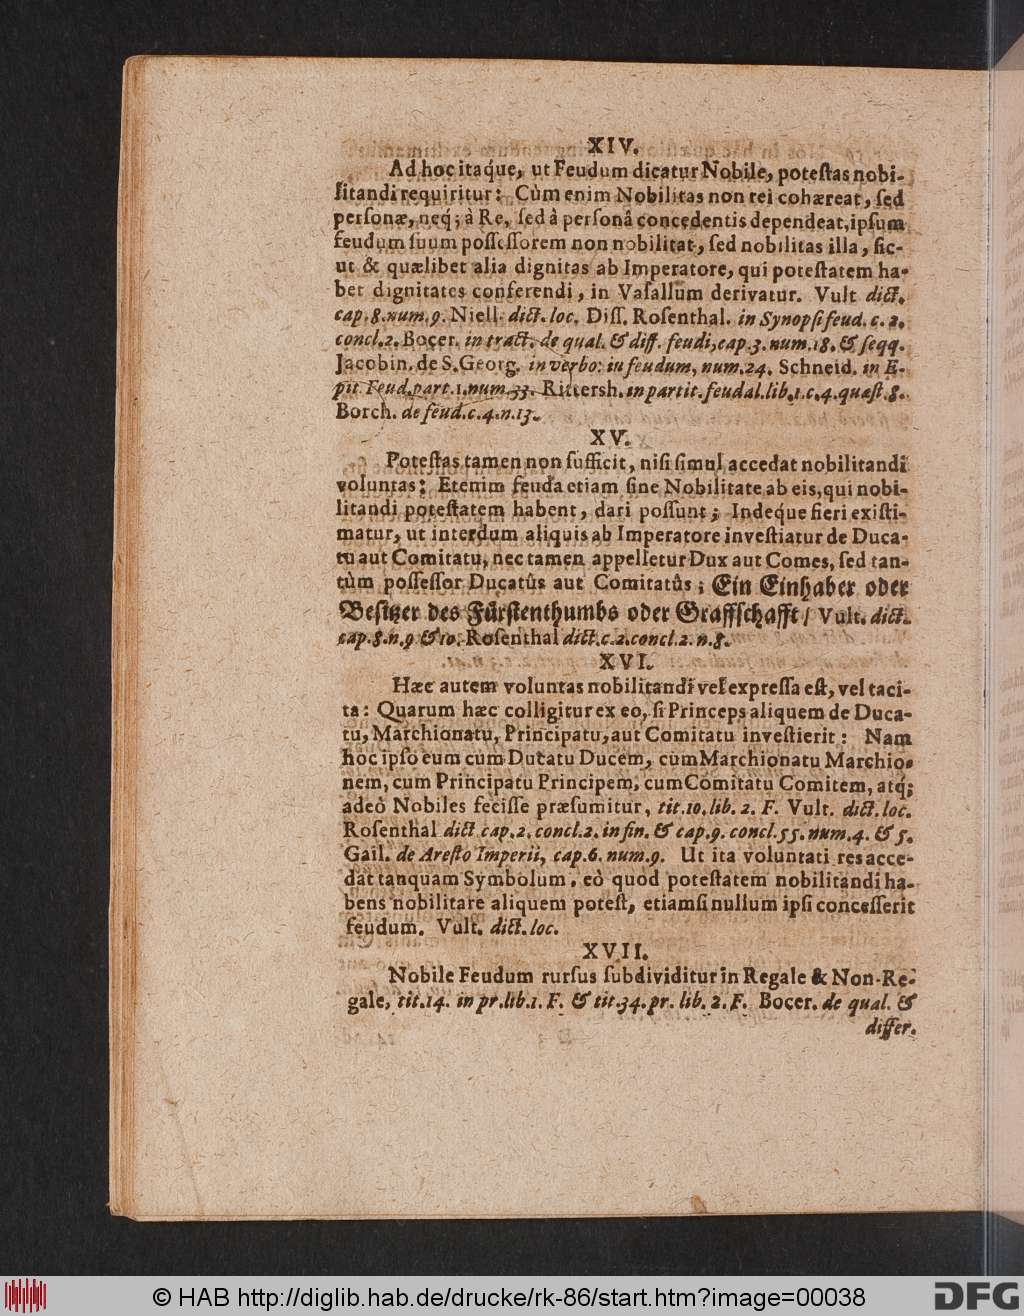 XIV.
Ad hoc itaque, ut Feudum dicatur Nobile, poteſtas nobi-
litandi requiritur: Cùm enim Nobilitas non rei cohæreat, ſed
perſonæ, neq; à Re, ſed à perſonâ concedentis dependeat, ipſum
feudum ſuum poſſeſſorem non nobilitat, ſed nobilitas illa, ſic-
ut & quælibet alia dignitas ab Imperatore, qui poteſtatem ha-
bet dignitates conferendi, in Vaſallum derivatur. Vult dict.
cap. 8. num. 9. Niell. dict. loc. Diſſ. Roſenthal. in Synopſi feud. c. 2.
concl. 2. Bocer. in tract. de qual. & diff. feudi, cap. 3. num. 18. & ſeqq.
Jacobin. de S. Georg. in verbo: in feudum, num. 24. Schneid. in E-
pit. Feud. part. 1. num. 33. Rittersh. in partit. feudal. lib. 1. c. 4. quæſt. 8.
Borch. de feud. c. 4. n. 13.
XV.
Poteſtas tamen non ſufficit, niſi ſimul accedat nobilitandi
voluntas: Etenim feuda etiam ſine Nobilitate ab eis, qui nobi-
litandi poteſtatem habent, dari poſſunt; Indeque fieri exiſti-
matur, ut interdum aliquis ab Imperatore inveſtiatur de Duca-
tu aut Comitatu, nec tamen appelletur Dux aut Comes, ſed tan-
tùm poſſeſſor Ducatûs aut Comitatûs; Ein Einhaber oder
Beſitzer des Fürſtenthumbs oder Graffſchafft / Vult. dict.
cap. 8. n. 9 & 10. Roſenthal dict. c. 2. concl. 2. n. 8.
XVI.
Hæc autem voluntas nobilitandi vel expreſſa eſt, vel taci-
ta: Quarum hæc colligitur ex eo, ſi Princeps aliquem de Duca-
tu, Marchionatu, Principatu, aut Comitatu inveſtierit: Nam
hoc ipſo eum cum Ducatu Ducem, cum Marchionatu Marchio-
nem, cum Principatu Principem, cum Comitatu Comitem, atq́;
adeò Nobiles feciſſe præſumitur, tit. 10. lib. 2. F. Vult. dict. loc.
Roſenthal dict cap. 2. concl. 2. in fin. & cap. 9. concl. 55. num. 4. & 5.
Gail. de Areſto Imperii, cap. 6. num. 9. Ut ita voluntati res acce-
dat tanquam Symbolum, eò quod poteſtatem nobilitandi ha-
bens nobilitare aliquem poteſt, etiamſi nullum ipſi conceſſerit
feudum. Vult. dict. loc.
XVII.
Nobile Feudum rurſus ſubdividitur in Regale & Non-Re-
gale, tit. 14. in pr. lib. 1. F. & tit. 34. pr. lib. 2. F. Bocer. de qual. &
differ.
© HAB http://diglib.hab.de/drucke/rk-86/start.htm?image=00038
DFG